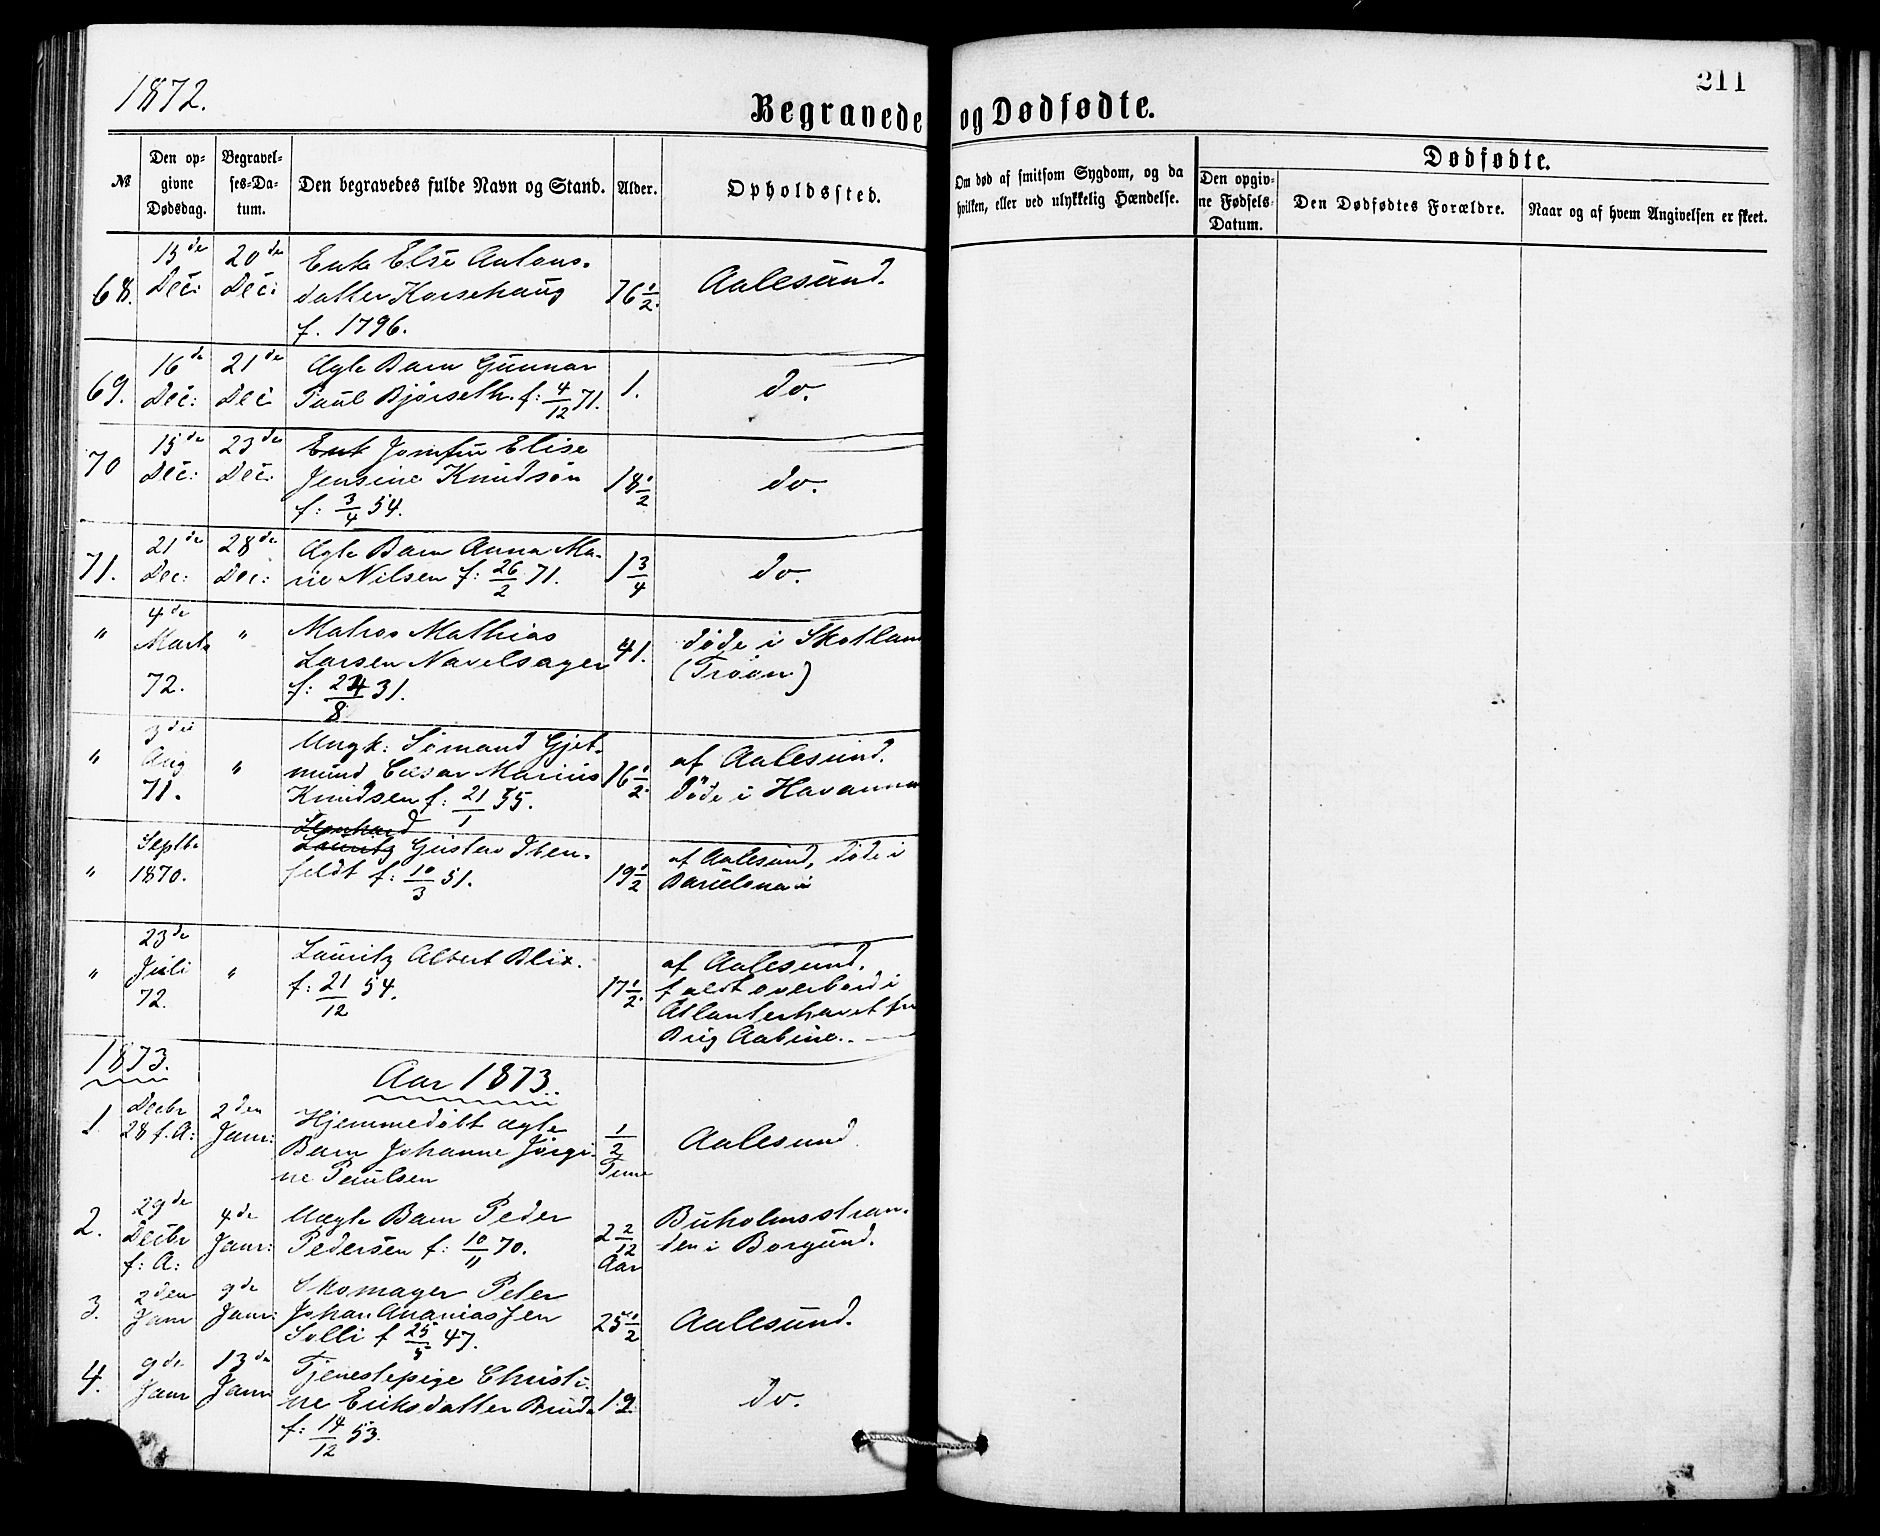 1872.
211
Begravede og Dødfødte.
Dødfødte.
№
Den op-
givne
Dødsdag.
Begravel-
ses-Da-
tum.
Den begravedes fulde Navn og Stand.
Alder.
Opholdssted.
Om død af smitsom Sygdom, og da
hvilken, eller ved ulykkelig Hændelse.
Den opgiv-
ne Fødsels-
Datum.
Den Dødfødtes Forældre.
Naar og af hvem Angivelsen er skeet.
68. 15de Dec: 20de Dec: Enke Else Antons- 76 1/2. Aalesund.
datter Korsehaug
f. 1796.
69. 16de Dec: 21de Dec: Ægte Barn Gunnar 1. do.
Paul Bjørseth. f: 4/12 71.
70 15de Dec: 23de Dec: Enk Jomfru Elise 18 1/2 do.
Jensine Knudsøn
f: 3/4 54.
71. 21de Dec: 28de Dec: Ægte Barn Anna Ma- 1 3/4 do.
rie Nilsen f: 26/2 71.
" 4de Marts 72. " Matros Mathias 41. døde i Skotland
Larsen Navelsager (Troon)
f: 24/8 31.
" 3die Aug 71. " Ungk: Sømand Gjet- 16 1/2. af Aalesund.
mund Cæsar Marius døde i Havanna
Knudsen f: 21/1 55.
Leonhard
" Septb. 1870. Lauritz Gustav Iben- 19 1/2 af Aalesund, døde i
feldt f: 10/3 51. Barcelona
" 23de Juli 72. " Lauritz Albert Blix. 17 1/2. af Aalesund.
f: 21/12 54. faldt overbord i
Atlanterhavet fra
Brig Aabine.
1873.
Aar 1873.
1. Decbr 28 f. A: 2den Janr: Hjemmedøbt ægte 1/2 Time Aalesund
Barn Johanne Jørgi-
ne Paulsen
2. 29de Decbr f: A: 4de Janr: Uægte Barn Peder 2 2/12 Aar Buholmsstran-
Pedersen f: 10/11 70. den i Borgund.
3. 2den Janr 9de Janr: Skomager Peter 25 1/2 Aalesund.
Johan Ananiassen
Solli f 25/5 47.
4. 9de Janr 13de Janr Tjenestepige Christi- 19 do.
ne Eriksdatter Brud-
f: 14/12 53.